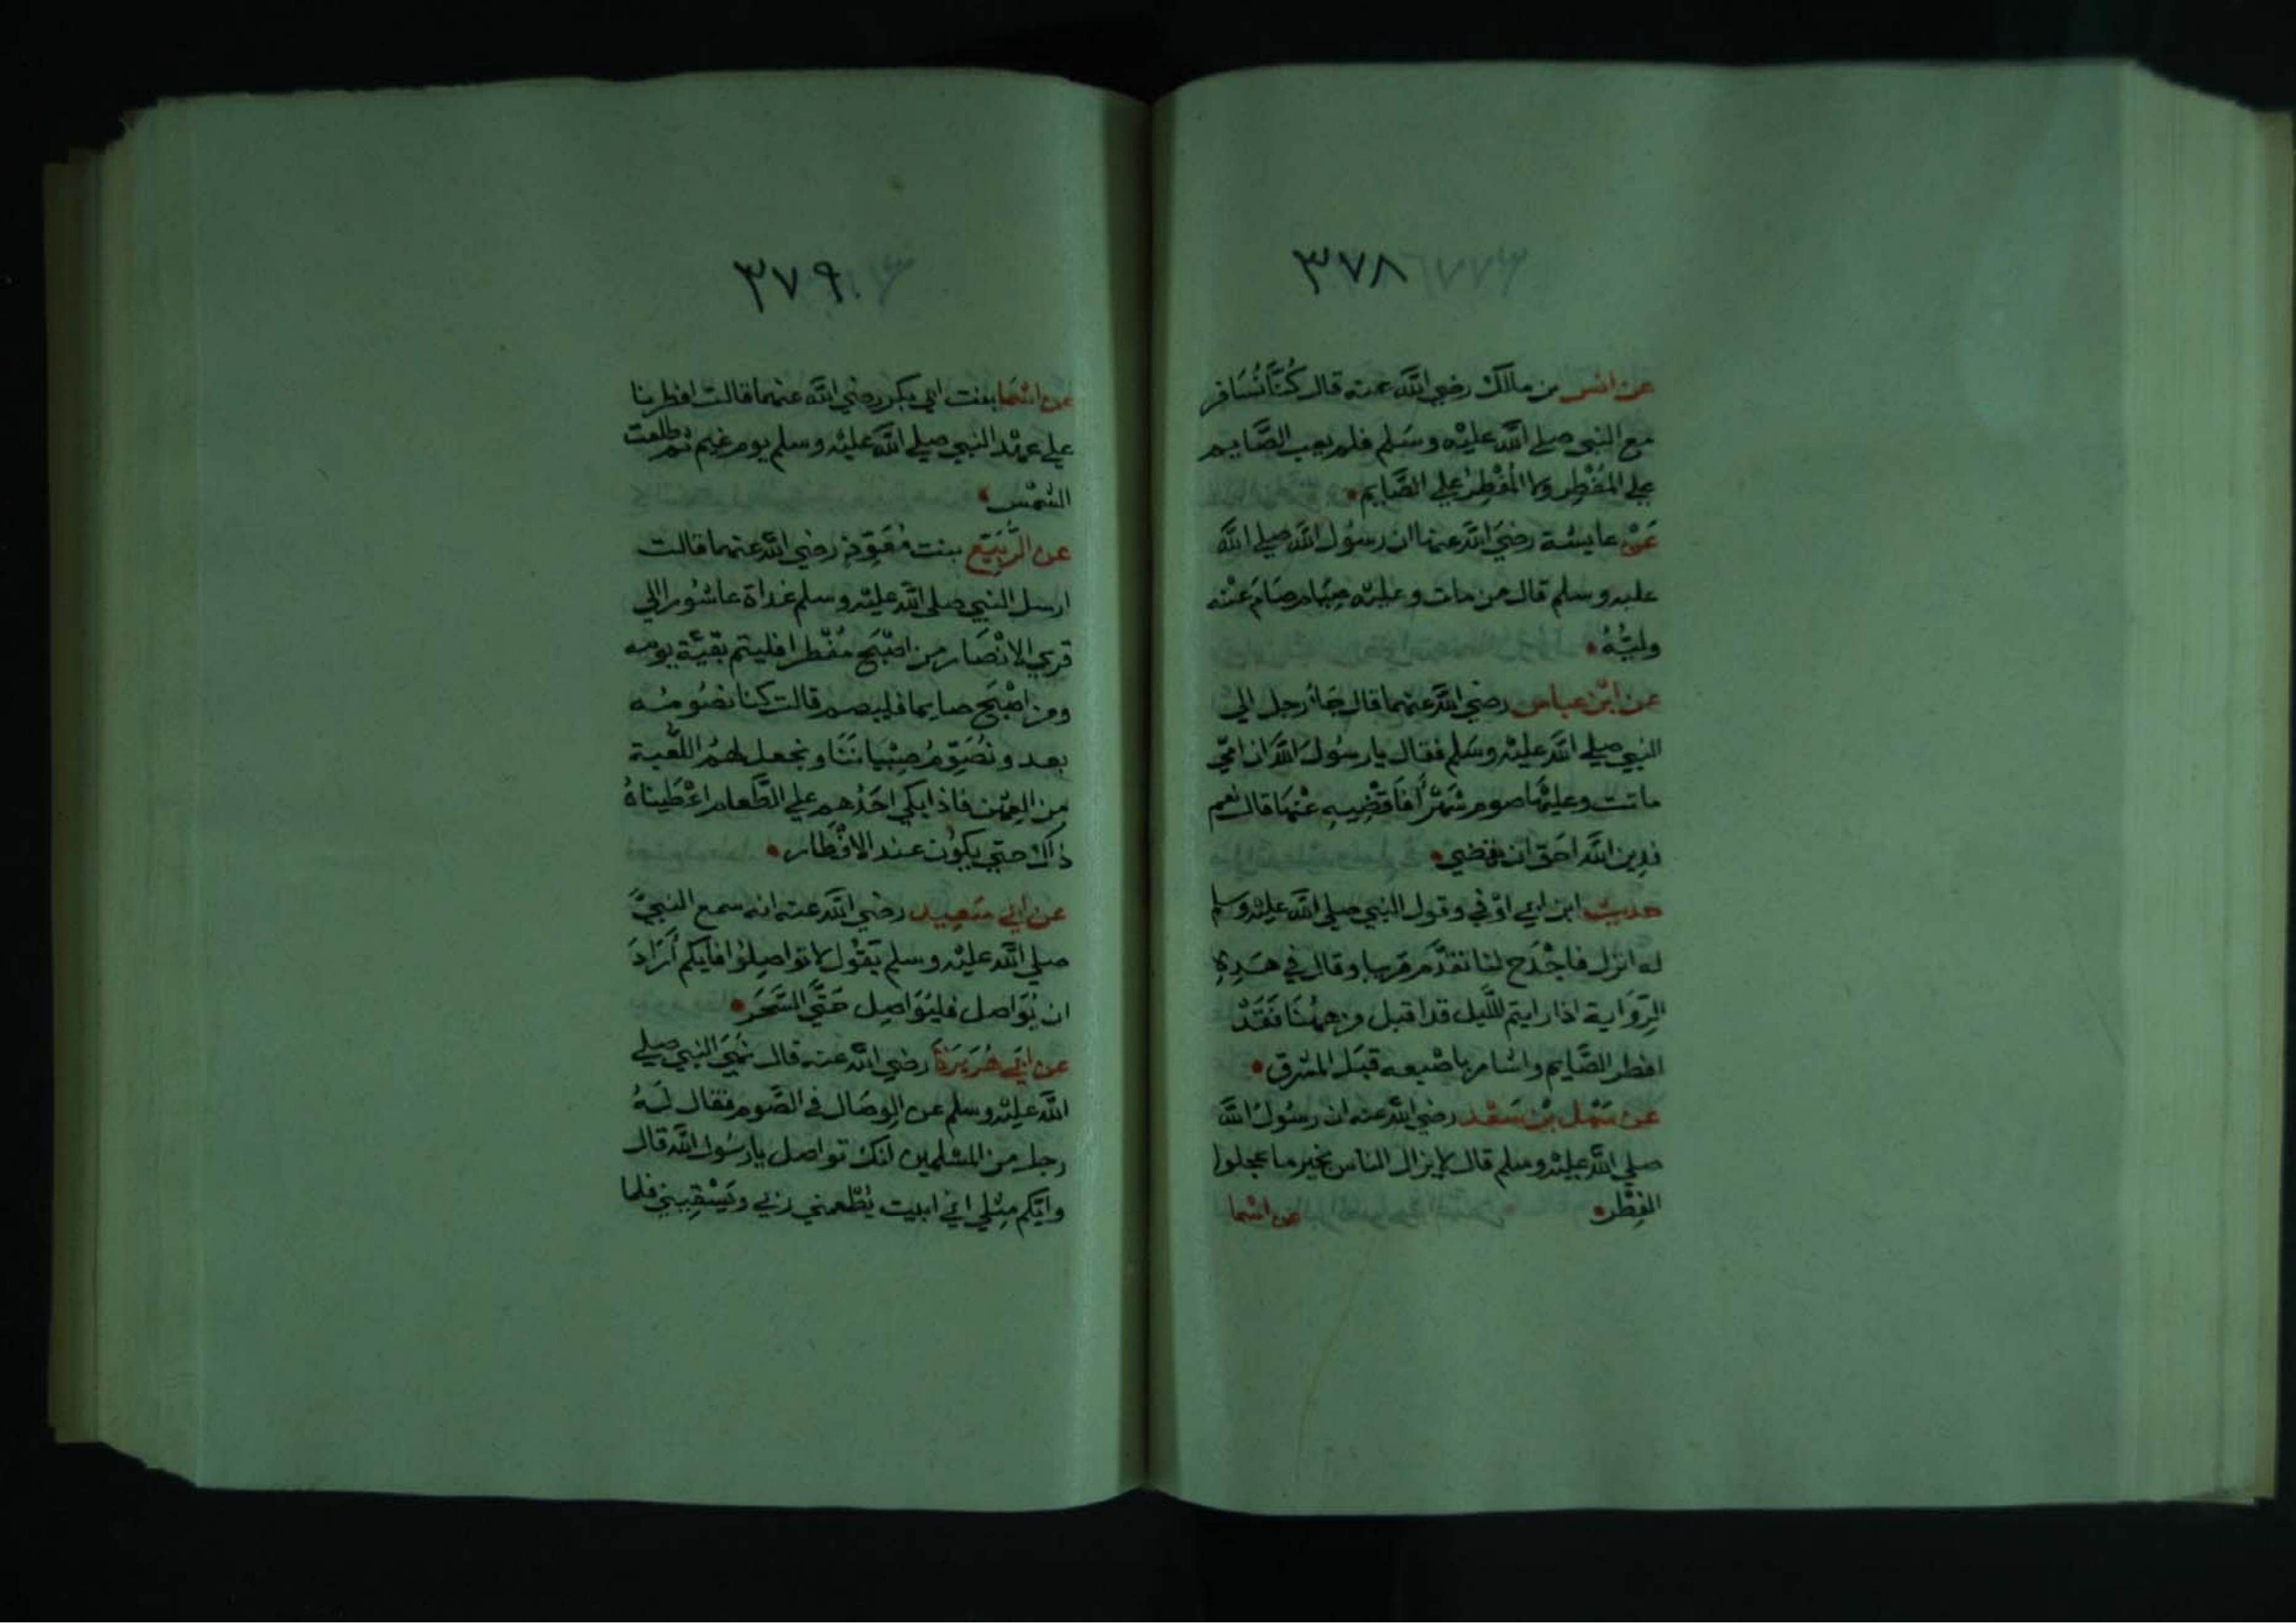 ٣٧٨
عن انس بن مالك رضي الله عنه قال كُنَّا نُسَافر
مع النبي صلي الله عليه وسَلم فلم يعب الصَّايم
علي المُفْطِر ولا المُفْطِرُ علي الصَّايم
عَنْ عايشة رضيَ الله عنها ان رسُول الله صلي الله
عليه وسلم قال من مات وعليْه صِيَام صَامَ عَنْه
وليُّهُ
عن ابْن عباس رضي الله عنهما قال جَاُ رجل الي
النبي صلي الله عليْه وسَلم فقال يا رسُول الله ان امّي
ماتت وعليْها صوم شهْرٌ افاَقْضِيه عَنْهَا قال نعم
فدين الله احَق ان يقضي
حديث ابن ابي اوْفي وقول النبي صلي الله عليْه وسلم
له انزل فاجْدَح لنا تقدَّم قريبا وقال في هَذِهِ
الرِّوَاية اذا رايتم اللَّيل قد اقبل من هاهُنَا فَقَدْ
افطر الصَّايم واشار باصْبعه قبَل المشرق
عن سَهْل بْن سَعْد رضي الله عنه ان رسُولَ الله
صلي الله عليْه وسلم قال لا يزال الناس بخير ما عجلوا
الفِطْر
عن اسْما
٣٧٩
عن اسْمَا بنت ابي بكر رضي الله عنهما قالت افطرنا
علي عهْد النبي صلي الله عليْه وسلم يوم غيم ثم طلعت
الشمْس
عن الرُّبَيِّع بنت مُعَوِّذٍ رضي الله عنهما قالت
ارسل النبي صلي الله عليْه وسلم غداة عاشُورا الي
قري الانْصَار من اصْبَح مُفْطرا فليتم بَقيَّة يومه
ومن اصْبَح صايما فليصم قالت كنا نصُومُه
بعد ونُصَوِّمُ صِبْيانَنَا ونجعل لهُم اللّعبة
من العِهْن فاذا بكي احَدُهم علي الطَّعام اعْطَيناهُ
ذاك حتي يكوُن عند الافْطار
عن ابي سَعيد رضي الله عنه انه سمع النبيَّ
صلي الله عليْه وسلم يَقُول لا تواصِلُوا فايكم أَرَادَ
ان يُوَاصل فليُوَاصِل حَتَّي السَّحَر
عن ابي هُرَيرَةَ رضي الله عنه قال نَهَيَ النبي صلي
الله عليْه وسلم عن الوِصَال في الصَّوم فقال لَهُ
رجل من المسْلمين انك تواصل يا رسُول الله قال
وايّكم مِثْلي اني ابيت يُطْعمني ربي ويَسْقِيني فلما